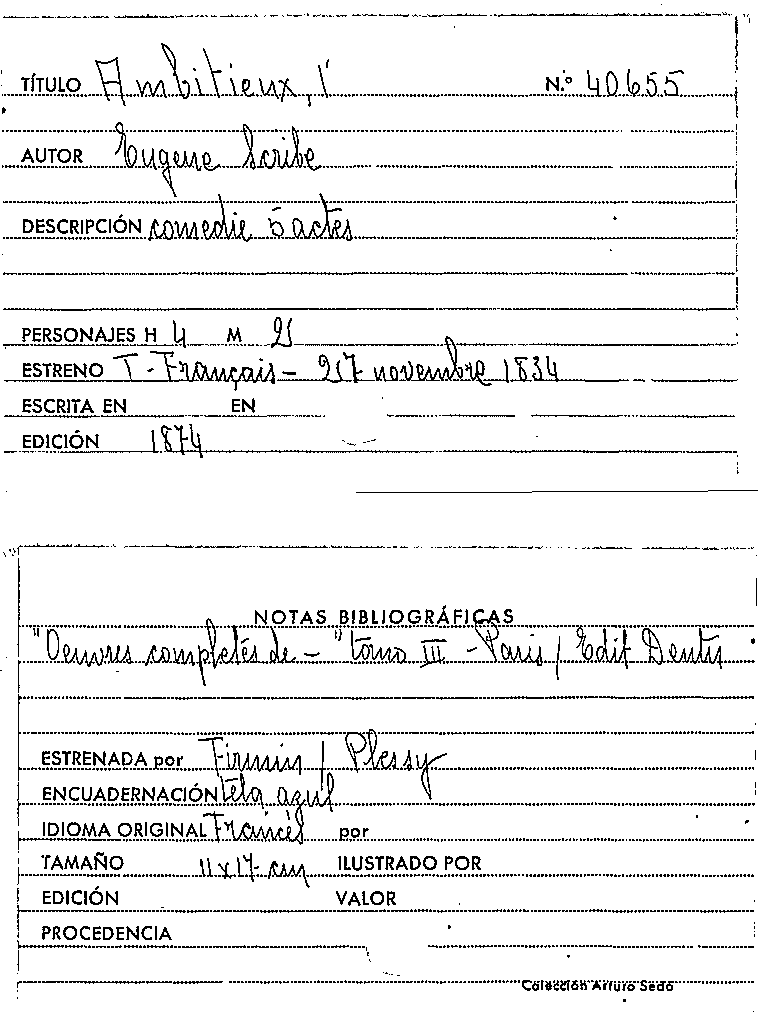 TÍTULO Ambitieux, l' N.º 40655
AUTOR Eugene Scribe
DESCRIPCIÓN comedie 5 actes
PERSONAJES H 4 M 2
ESTRENO T. Français - 27 novembre 1834
ESCRITA EN EN
EDICIÓN 1874
NOTAS BIBLIOGRÁFICAS
"Oeuvres completés de - " tomo III - Paris / Edit Dentu
ESTRENADA por Firmin / Plessy
ENCUADERNACIÓN tela azul
IDIOMA ORIGINAL Francés por
TAMAÑO 11 x 17 cm ILUSTRADO POR
EDICIÓN VALOR
PROCEDENCIA
Colección Arturo Sedó